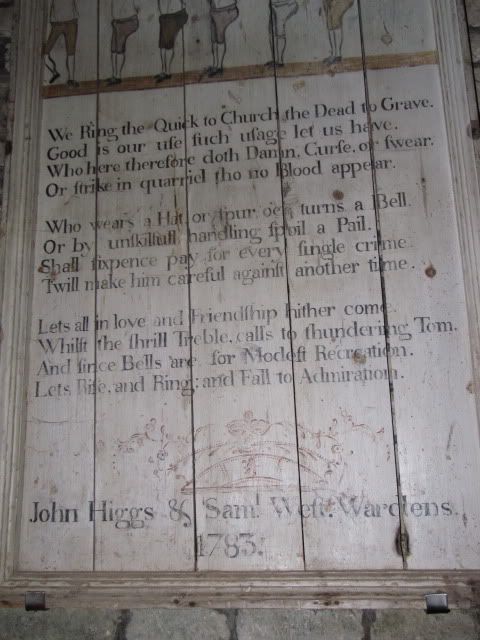 We Ring the Quick to Church the Dead to Grave.
Good is our uſe ſuch uſage let us have.
Who here therefore doth Damn, Curſe, or ſwear.
Or ſtrike in quarriel tho no Blood appear.
Who wears a Hat, or ſpur, oer turns a Bell.
Or by unſkilfull handling ſpoil a Pail.
Shall ſixpence pay for every ſingle crime.
Twill make him careful againſt another time.
Lets all in love and Friendſhip hither come.
Whilſt the ſhrill Treble, calls to thundering Tom.
And ſince Bells are for Modeſt Recreation.
Lets Riſe, and Ring; and Fall to Admiration.
John Higgs & Samˡ Weſt: Wardens.
1783: